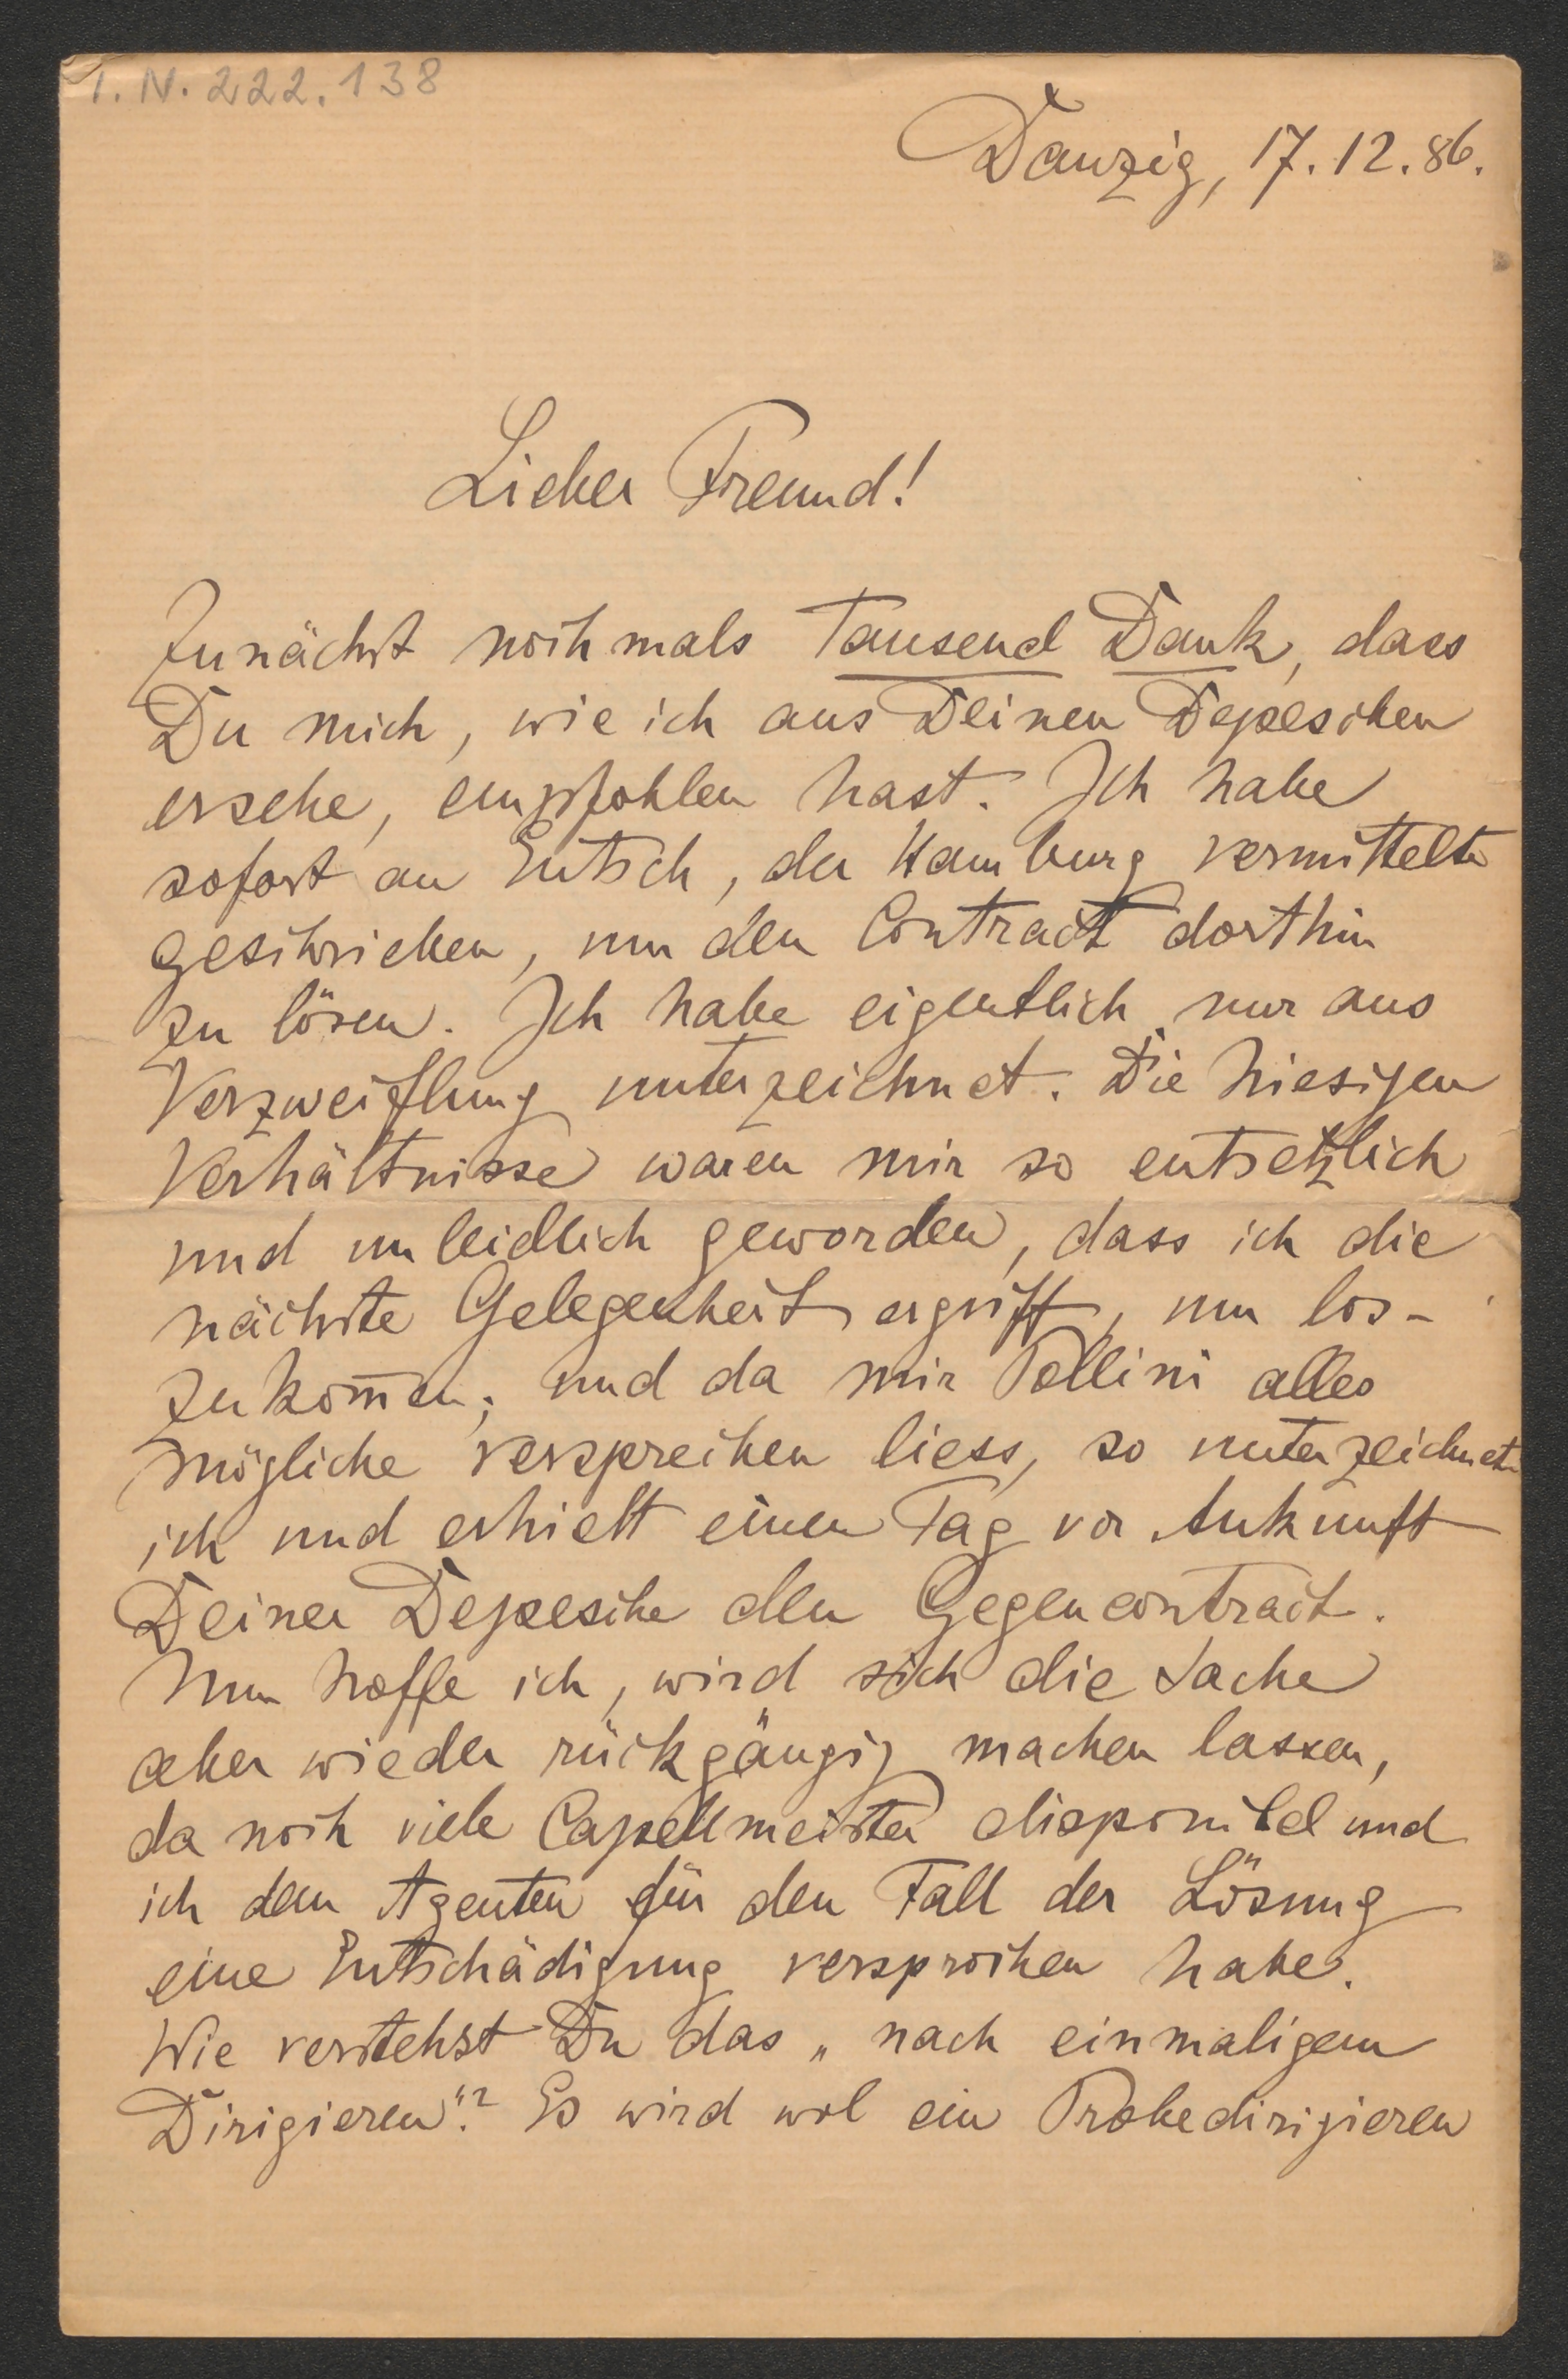 I. N. 222.138
Danzig, 17.12.86.
Lieber Freund!
Zunächst nochmals Tausend Dank, dass
Du mich, wie ich aus Deinen Depeschen
ersehe, empfohlen hast. Ich habe
sofort an Entsch, der Hamburg vermittelte
geschrieben, um den Contract dorthin
zu lösen. Ich habe eigentlich nur aus
Verzweiflung unterzeichnet. Die hiesigen
Verhältnisse waren mir so entsetzlich
und unleidlich geworden, dass ich die
nächste Gelegenheit ergriff, um los-
zukom̄en; und da mir Pollini alles
mögliche versprechen liess, so unterzeichnete
ich und erhielt einen Tag vor Ankunft
Deiner Depesche den Gegencontract.
Nun hoffe ich, wird sich die Sache
aber wieder rückgängig machen lassen,
da noch viele Capellmeister disponibel und
ich dem Agenten für den Fall der Lösung
eine Entschädigung versprochen habe.
Wie verstehst Du das „nach einmaligem
Dirigieren“? Es wird wol ein Probedirigieren